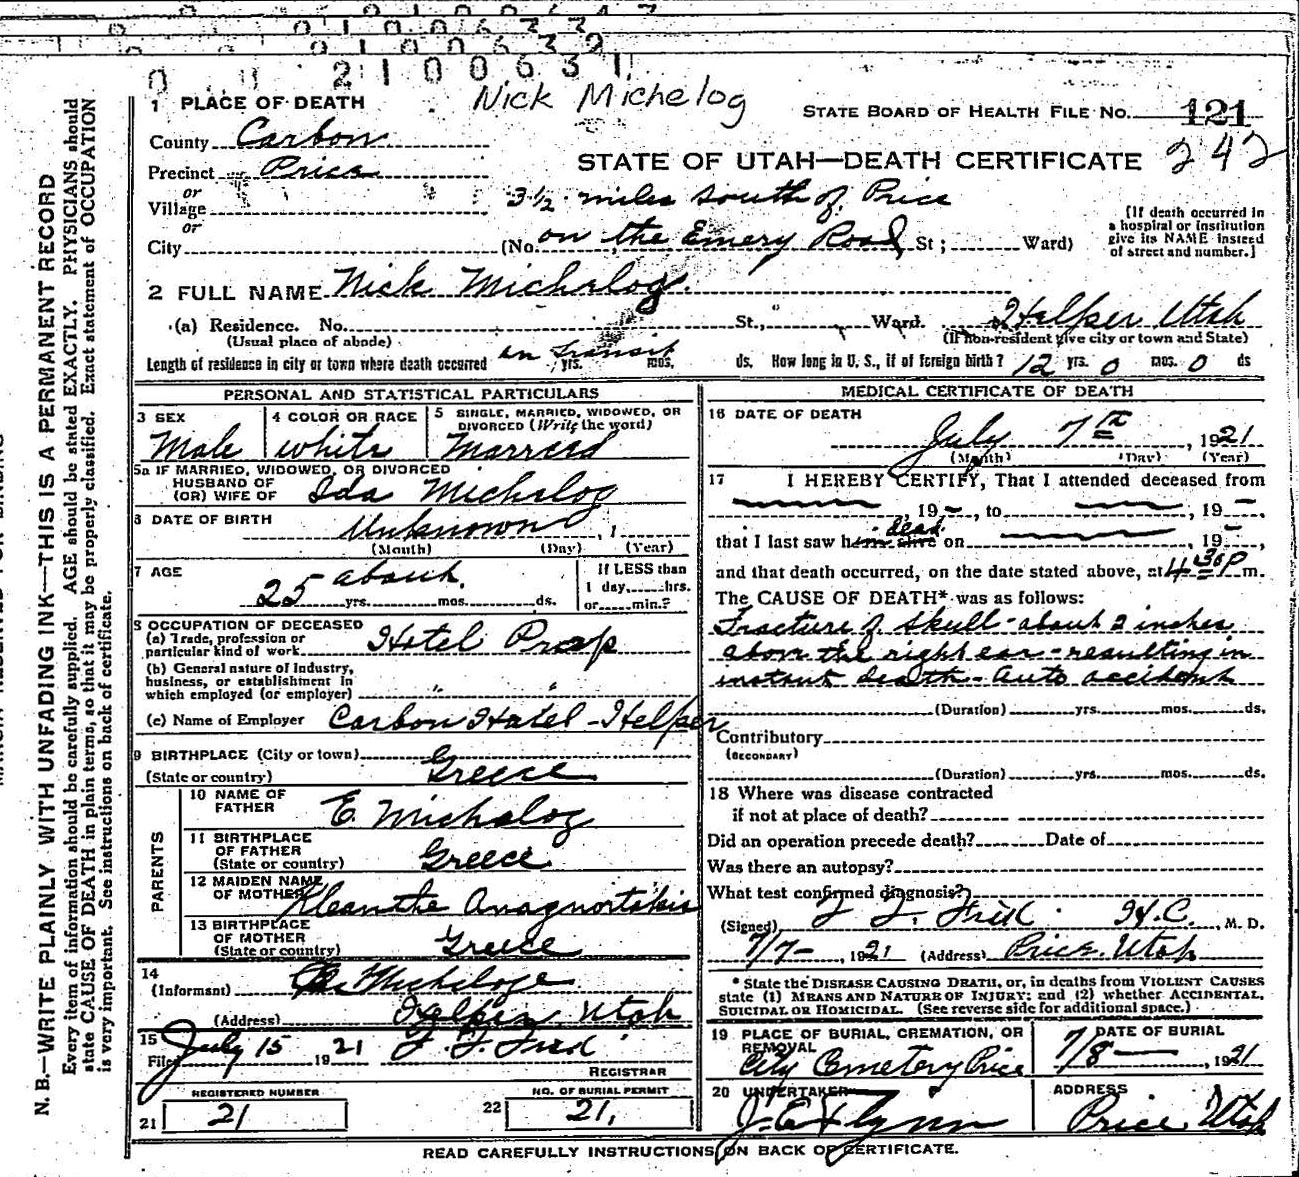 2100631
Nick Michelog
1 PLACE OF DEATH
STATE BOARD OF HEALTH FILE NO. 121
242
County Carbon
STATE OF UTAH—DEATH CERTIFICATE
Precinct Price
or
Village
3½ miles south of Price
or
City (No. on the Emery Road St; Ward)
[If death occurred in
a hospital or institution
give its NAME instead
of street and number.]
2 FULL NAME Nick Michalog.
(a) Residence. No. St., Ward. Helper Utah
(Usual place of abode) (If non-resident give city or town and State)
Length of residence in city or town where death occurred in transit yrs. mos. ds. How long in U. S., if of foreign birth? 12 yrs. 0 mos. 0 ds
PERSONAL AND STATISTICAL PARTICULARS
3 SEX
Male
4 COLOR OR RACE
white
5 SINGLE, MARRIED, WIDOWED, OR
DIVORCED (Write the word)
Married
5a IF MARRIED, WIDOWED, OR DIVORCED
HUSBAND OF
(OR) WIFE OF Ida Michalog
6 DATE OF BIRTH Unknown , 1
(Month) (Day) (Year)
7 AGE about
25 yrs. mos. ds.
If LESS than
1 day, hrs.
or min.?
8 OCCUPATION OF DECEASED
(a) Trade, profession or
particular kind of work Hotel Prop
(b) General nature of Industry,
business, or establishment in
which employed (or employer) " "
(c) Name of Employer Carbon Hotel - Helper
9 BIRTHPLACE (City or town)
(State or country) Greece
PARENTS
10 NAME OF
FATHER E. Michalog
11 BIRTHPLACE
OF FATHER
(State or country) Greece
12 MAIDEN NAME
OF MOTHER Kleanthe Anagnortakis
13 BIRTHPLACE
OF MOTHER
(State or country) Greece
14
(Informant) Micheloge
(Address) Helper Utah
15
Filed July 15 1921 F. F. Fred
REGISTRAR
REGISTERED NUMBER
21 21
NO. OF BURIAL PERMIT
22 21,
MEDICAL CERTIFICATE OF DEATH
16 DATE OF DEATH
July 7th, 1921
(Month) (Day) (Year)
17 I HEREBY CERTIFY, That I attended deceased from
, 19 –, to , 19 –,
dead
that I last saw him alive on , 19 –,
and that death occurred, on the date stated above, at 4 30 P m.
The CAUSE OF DEATH* was as follows:
Fracture of skull - about 2 inches
above the right ear - resulting in
instant death - Auto accident
(Duration) yrs. mos. ds.
Contributory
(SECONDARY)
(Duration) yrs. mos. ds.
18 Where was disease contracted
if not at place of death?
Did an operation precede death? Date of
Was there an autopsy?
What test confirmed diagnosis?
(Signed) F. F. Fred H.C., M. D.
7/7 -, 1921 (Address) Price Utah
* State the DISEASE CAUSING DEATH, or, in deaths from VIOLENT CAUSES
state (1) MEANS AND NATURE OF INJURY; and (2) whether ACCIDENTAL,
SUICIDAL OR HOMICIDAL. (See reverse side for additional space.)
19 PLACE OF BURIAL, CREMATION, OR
REMOVAL
City Cemetery Price
DATE OF BURIAL
7/8 – , 1921
20 UNDERTAKER
J. E. Flynn
ADDRESS
Price Utah
READ CAREFULLY INSTRUCTIONS ON BACK OF CERTIFICATE.
N. B.—WRITE PLAINLY WITH UNFADING INK—THIS IS A PERMANENT RECORD
Every item of information should be carefully supplied. AGE should be stated EXACTLY. PHYSICIANS should
state CAUSE OF DEATH in plain terms, so that it may be properly classified. Exact statement of OCCUPATION
is very important. See instructions on back of certificate.